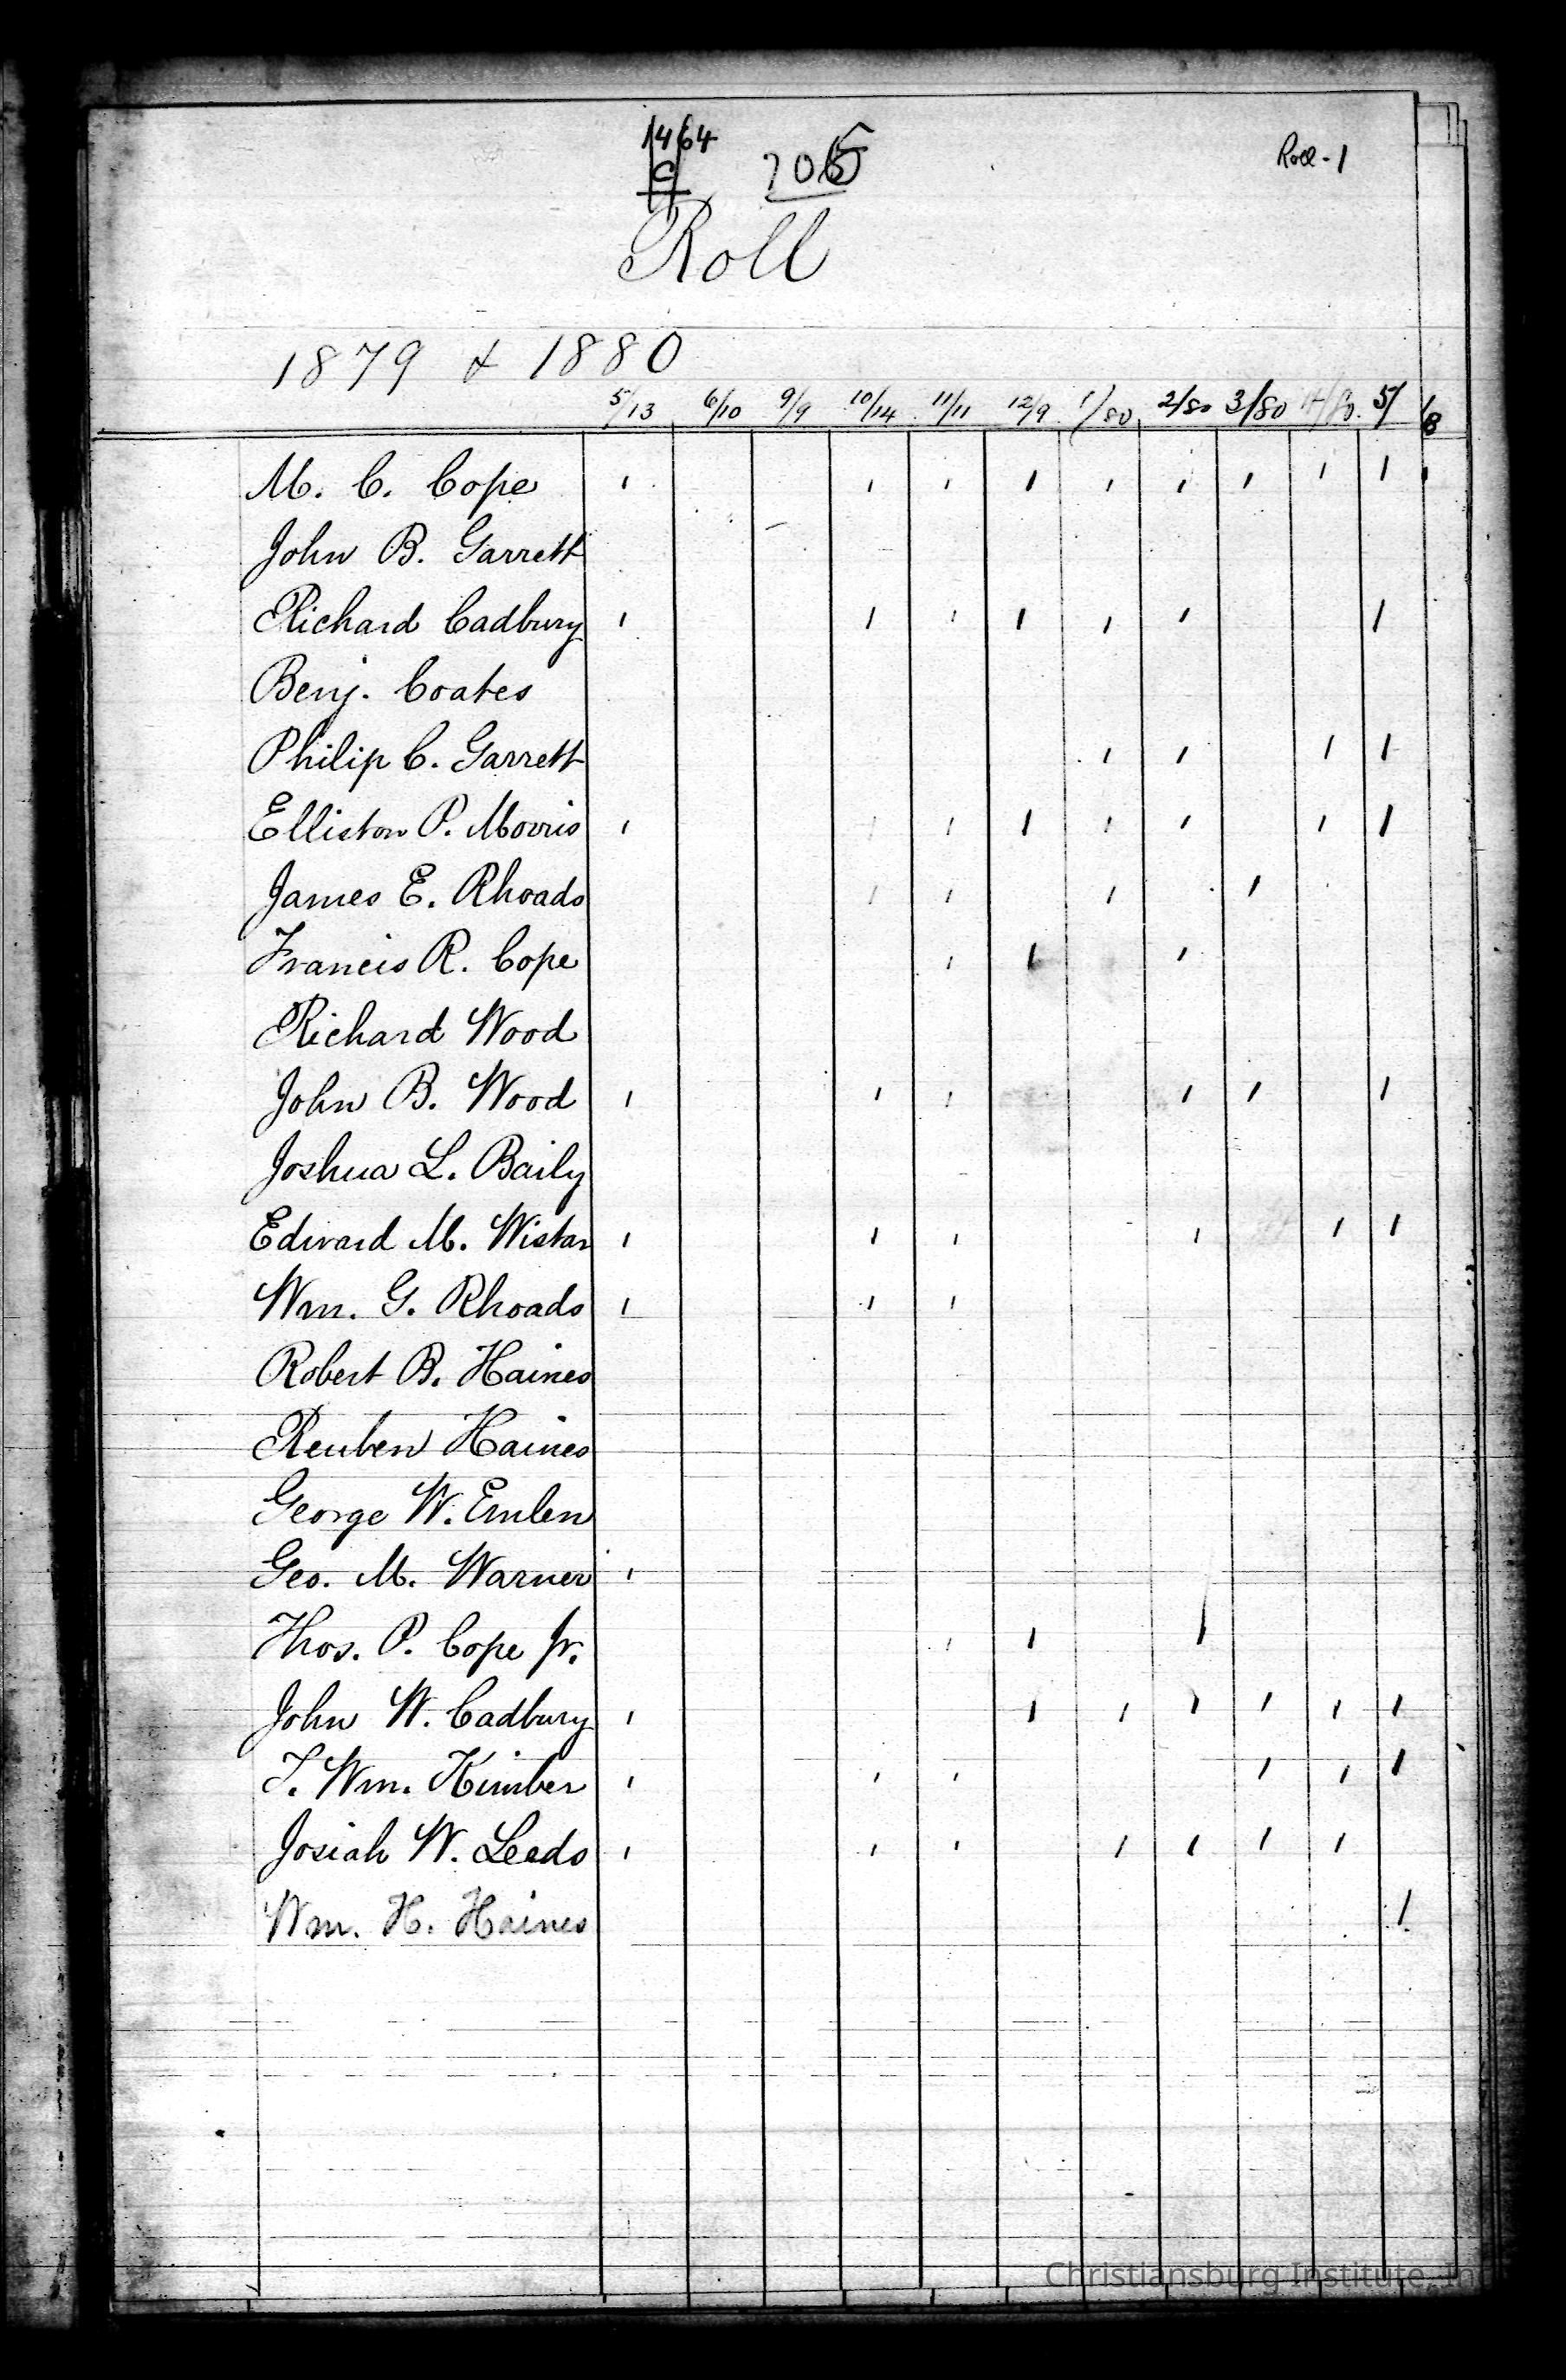 1464
C
705
Roll - 1
Roll
1879 & 1880
5/13 6/10 9/9 10/14 11/11 12/9 1/80 2/80 3/80 4/80. 5/
M. C. Cope ı ı ı ı ı ı ı ı ı ı
John B. Garrett
Richard Cadbury ı ı ı ı ı ı ı
Benj. Coates
Philip C. Garrett ı ı ı ı
Elliston P. Morris ı ı ı ı ı ı ı ı
James E. Rhoads ı ı ı ı
Francis R. Cope ı ı ı
Richard Wood
John B. Wood ı ı ı ı ı ı
Joshua L. Baily
Edward M. Wistar ı ı ı ı ı ı
Wm. G. Rhoads ı ı ı
Robert B. Haines
Reuben Haines
George W. Emlen
Geo. M. Warner ı
Thos. P. Cope Jr. ı ı ı
John W. Cadbury ı ı ı ı ı ı ı
T. Wm. Kimber ı ı ı ı ı ı
Josiah W. Leeds ı ı ı ı ı ı ı
Wm. H. Haines ı
Christiansburg Institute, In